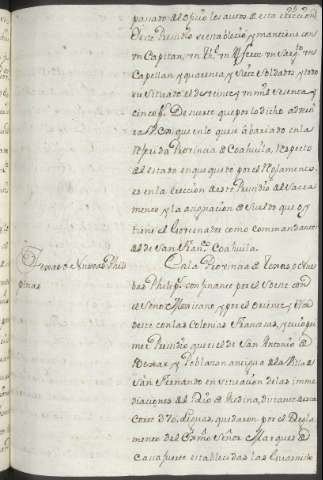 pasado al oficio los autos de esta ereccion
Este Presidio se establecio, y mantiene con
un Capitan, un Then.te un Alferez un Sarg.to un
Capellan y quarenta y siete Soldados, y todo
su Situado el de veinte, y un mil sesenta, y
cinco p.s De suerte que por lo dicho advier
ta V.Ex.a que en lo que se á variado en la
referida Provincia de Coahuila, respecto
al estado en que quedo por el Reglamento,
es en la ereccion de este Presidio del Sacra
mento y la asignacion de sueldo que oy
tiene el Governador como Commandante
al de San Fran.co Coahuila.
Texas o Nuevas Phili
pinas
En la Provincia de Texas, o Nue
bas Philip.s confinante por el Sueste con
el Seno Mexicano, y por el Oriente, y Nor
deste con las Colonias Francesas, y cuio pri
mer Presidio que es el de San Antonio de
Bexar, y Poblazon antigua a la Villa de
San Fernando en situacion de las imme
diaciones del Rio de Medina, distante de esta
Corte 376. leguas, quedaron por el Regla
mento del Exmo Señor Marques de
Casa fuerte establecidas las Guarnicio